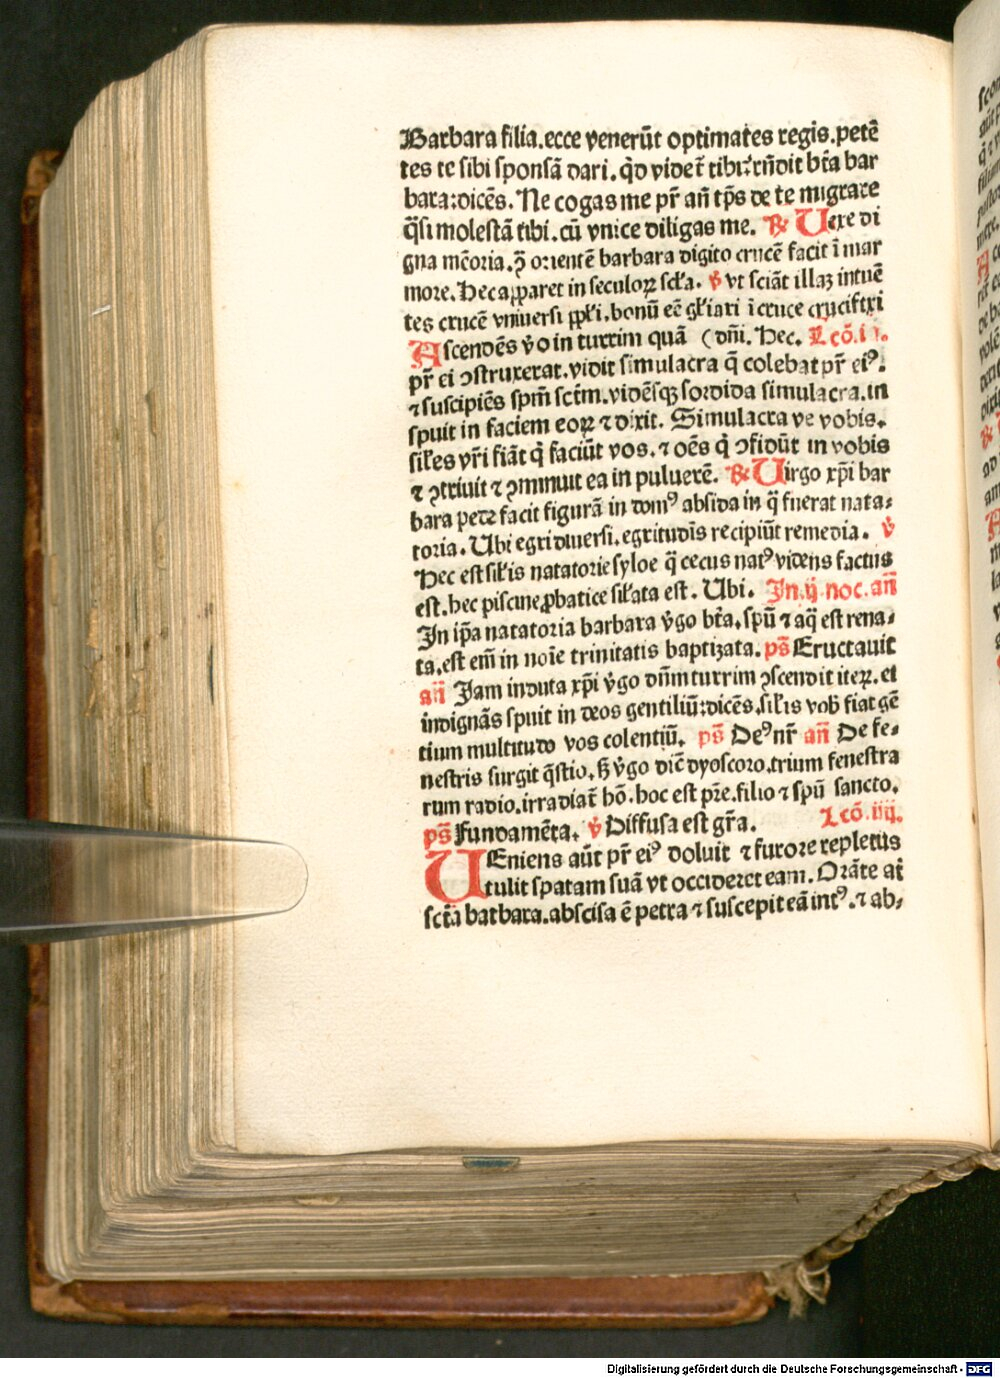 Barbara filia.ecce venerūt optimates regis.petē
tes te sibi sponsā dari.qd videt̄ tibi:rn̄dit bt̄a bar
bara:dicēs. Ne cogas me pr̄ an̄ tp̄s de te migrare
q̄si molestā tibi.cū vnice diligas me. ℟ Uere di
gna mēoria.ꝙ orientē barbara digito crucē facit ī mar
more.Hec apparet in seculoꝝ scła. ℣ vt sciāt illaꝫ intuē
tes crucē vniuersi ppłi.bonū eē głiari ī cruce crucifixi
Ascendēs v̄o in turrim quā (dn̄i. Hec. Lcō.ij.
pr̄ ei ↄstruxerat.vidit simulacra q̄ colebat pr̄ eiꝰ.
⁊ suscipiēs spm̄ sctm̄.vidēsqꝫ sordida simulacra.in
spuit in faciem eoꝝ ⁊ dixit. Simulacra ve vobis.
siłes vr̄i fiāt q̄ faciūt vos.⁊ oēs q̄ ↄfidūt in vobis
⁊ ↄtriuit ⁊ ↄminuit ea in puluerē. ℟ Uirgo xp̄i bar
bara petre facit figurā in domꝰ absida in q̄ fuerat nata⸗
toria. Ubi egri diuersi.egritudīs recipiūt remedia. ℣
Hec est siłis natatorie syloe q̄ cecus natꝰ videns factus
est.hec piscine ꝓbatice siłata est. Ubi. In.ij.noc.an̄
In ip̄a natatoria barbara v̄go bt̄a.spū ⁊ aq̄ est rena⸗
ta.est em̄ in noīe trinitatis baptizata. ps̄ Eructauit
an̄ Jam induta xp̄i v̄go dn̄m turrim ↄscendit iteꝝ.et
indignās spuit in deos gentiliū:dicēs.siłis vob̄ fiat gē
tium multitudo vos colentiū. ps̄ Deꝰ nr̄ an̄ De fe⸗
nestris surgit q̄stio.ħ v̄go dic̄ dyoscoro.trium fenestra
rum radio.irradiat̄ hō.hoc est pr̄e.filio ⁊ spū sancto.
ps̄ Fundamēta. ℣ Diffusa est gr̄a. Lcō.iij.
UEniens aūt pr̄ eiꝰ doluit ⁊ furore repletus
tulit spatam suā vt occideret eam. Orāte at̄
sctā barbara.abscisa ē petra ⁊ suscepit eā intꝰ.⁊ ab⸗
Digitalisierung gefördert durch die Deutsche Forschungsgemeinschaft - DFG